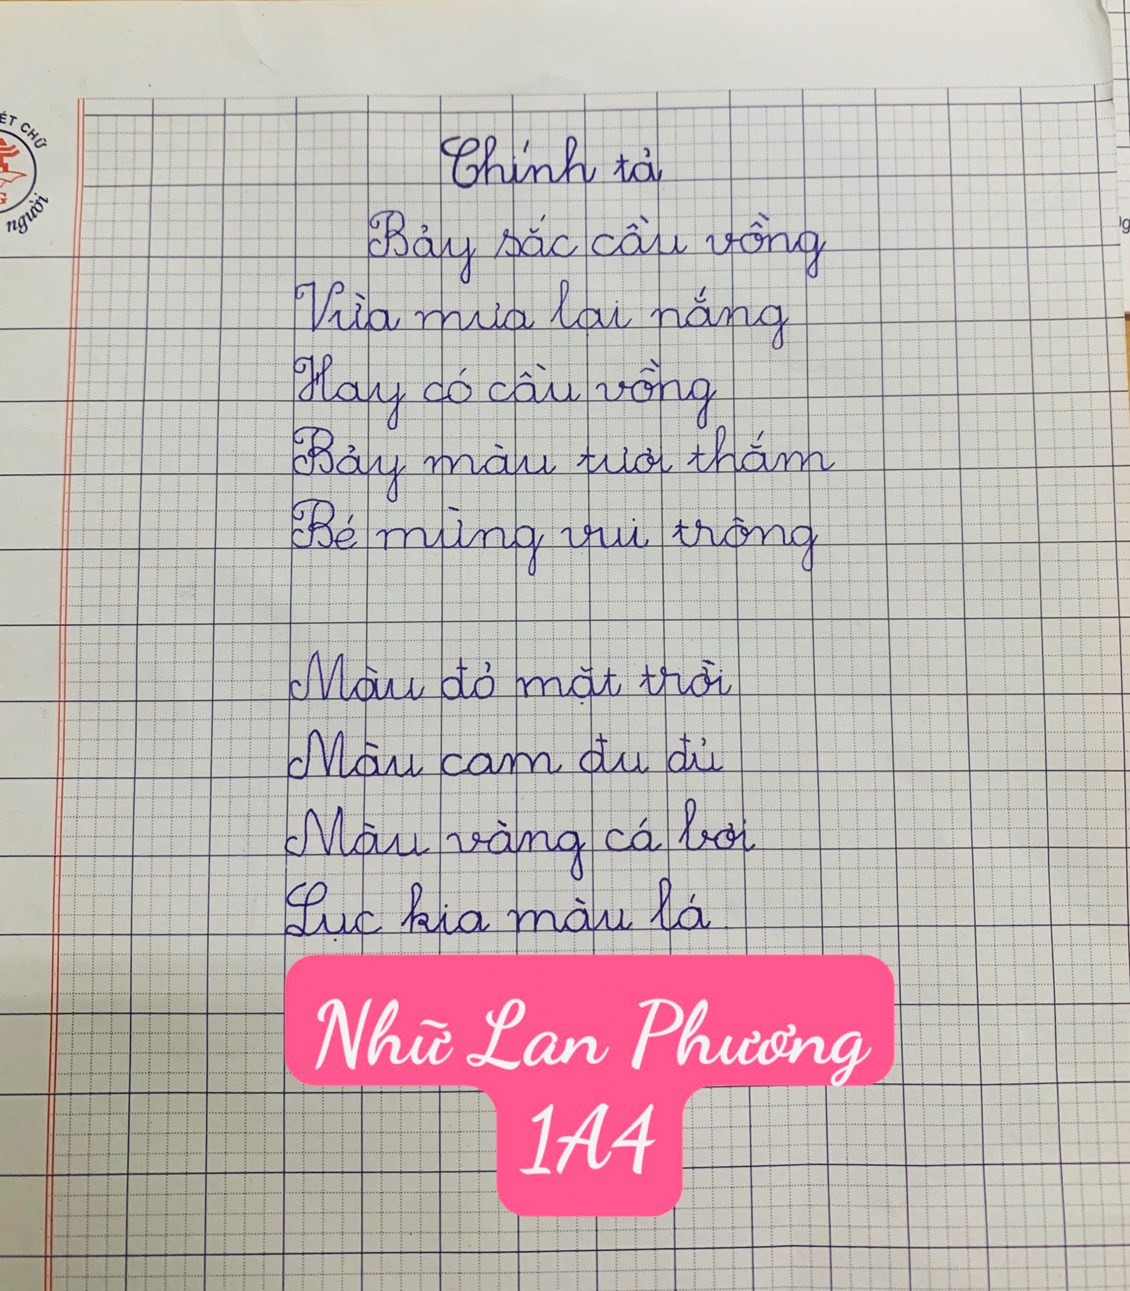 ẾT CHỮ
người
Chính tả
Bảy sắc cầu vồng
Vừa mưa lại nắng
Hay có cầu vồng
Bảy màu tươi thắm
Bé mừng vui trông
Màu đỏ mặt trời
Màu cam đu đủ
Màu vàng cá bơi
Lục kia màu lá
Nhữ Lan Phương
1A4